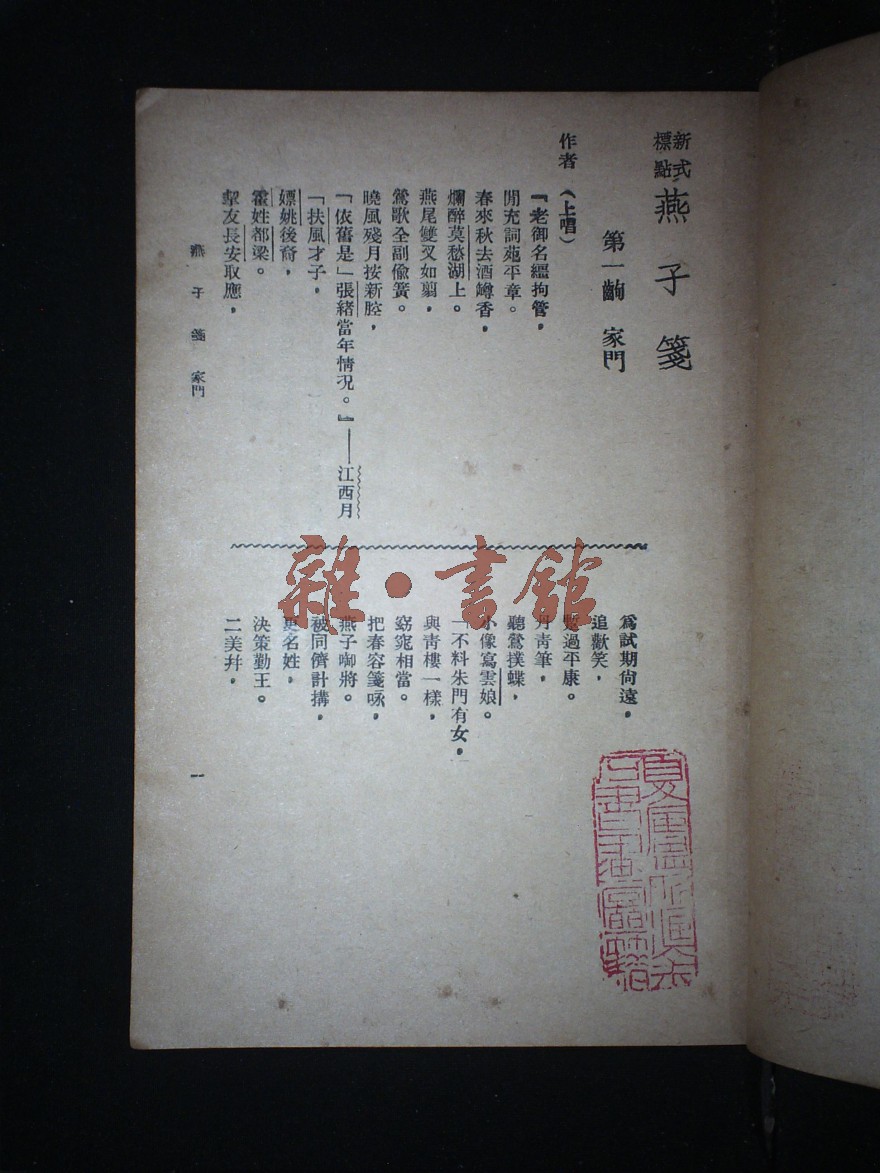 新式標點 燕子箋
第一齣 家門
作者 （上唱）
『老御名繮拘管，
閒充詞苑平章。
春來秋去酒罇香，
爛醉莫愁湖上。
燕尾雙叉如翦，
鶯歌全副偸簧。
曉風殘月按新腔，
「依舊是」張緒當年情况。』——江西月
「扶風才子，
嫖姚後裔，
霍姓都梁。
挈友長安取應，
爲試期尙遠，
追歡笑，
暫過平康。
丹靑筆，
聽鶯撲蝶，
小像寫雲娘。
「不料朱門有女，
與靑樓一樣，
窈窕相當。
把春容箋咏，
燕子啣將。
被同儕計搆，
更名姓，
決策勤王。
二美幷，
燕子箋 家門
一
雜·書館